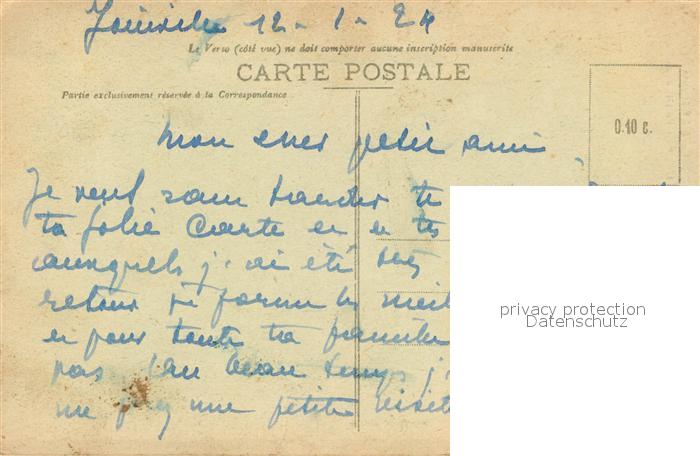 Joinville 12 - 1 - 24
Le Verso (côté vue) ne doit comporter aucune inscription manuscrite
CARTE POSTALE
Partie exclusivement réservée à la Correspondance
0.10 c.
Mon cher petit ami
Je veux sans tarder te
ta jolie carte et
auxquels j'ai été
retour je forme les meil
et pour toute ta famille
pas beau temps j'
me une petite visite
privacy protection
Datenschutz